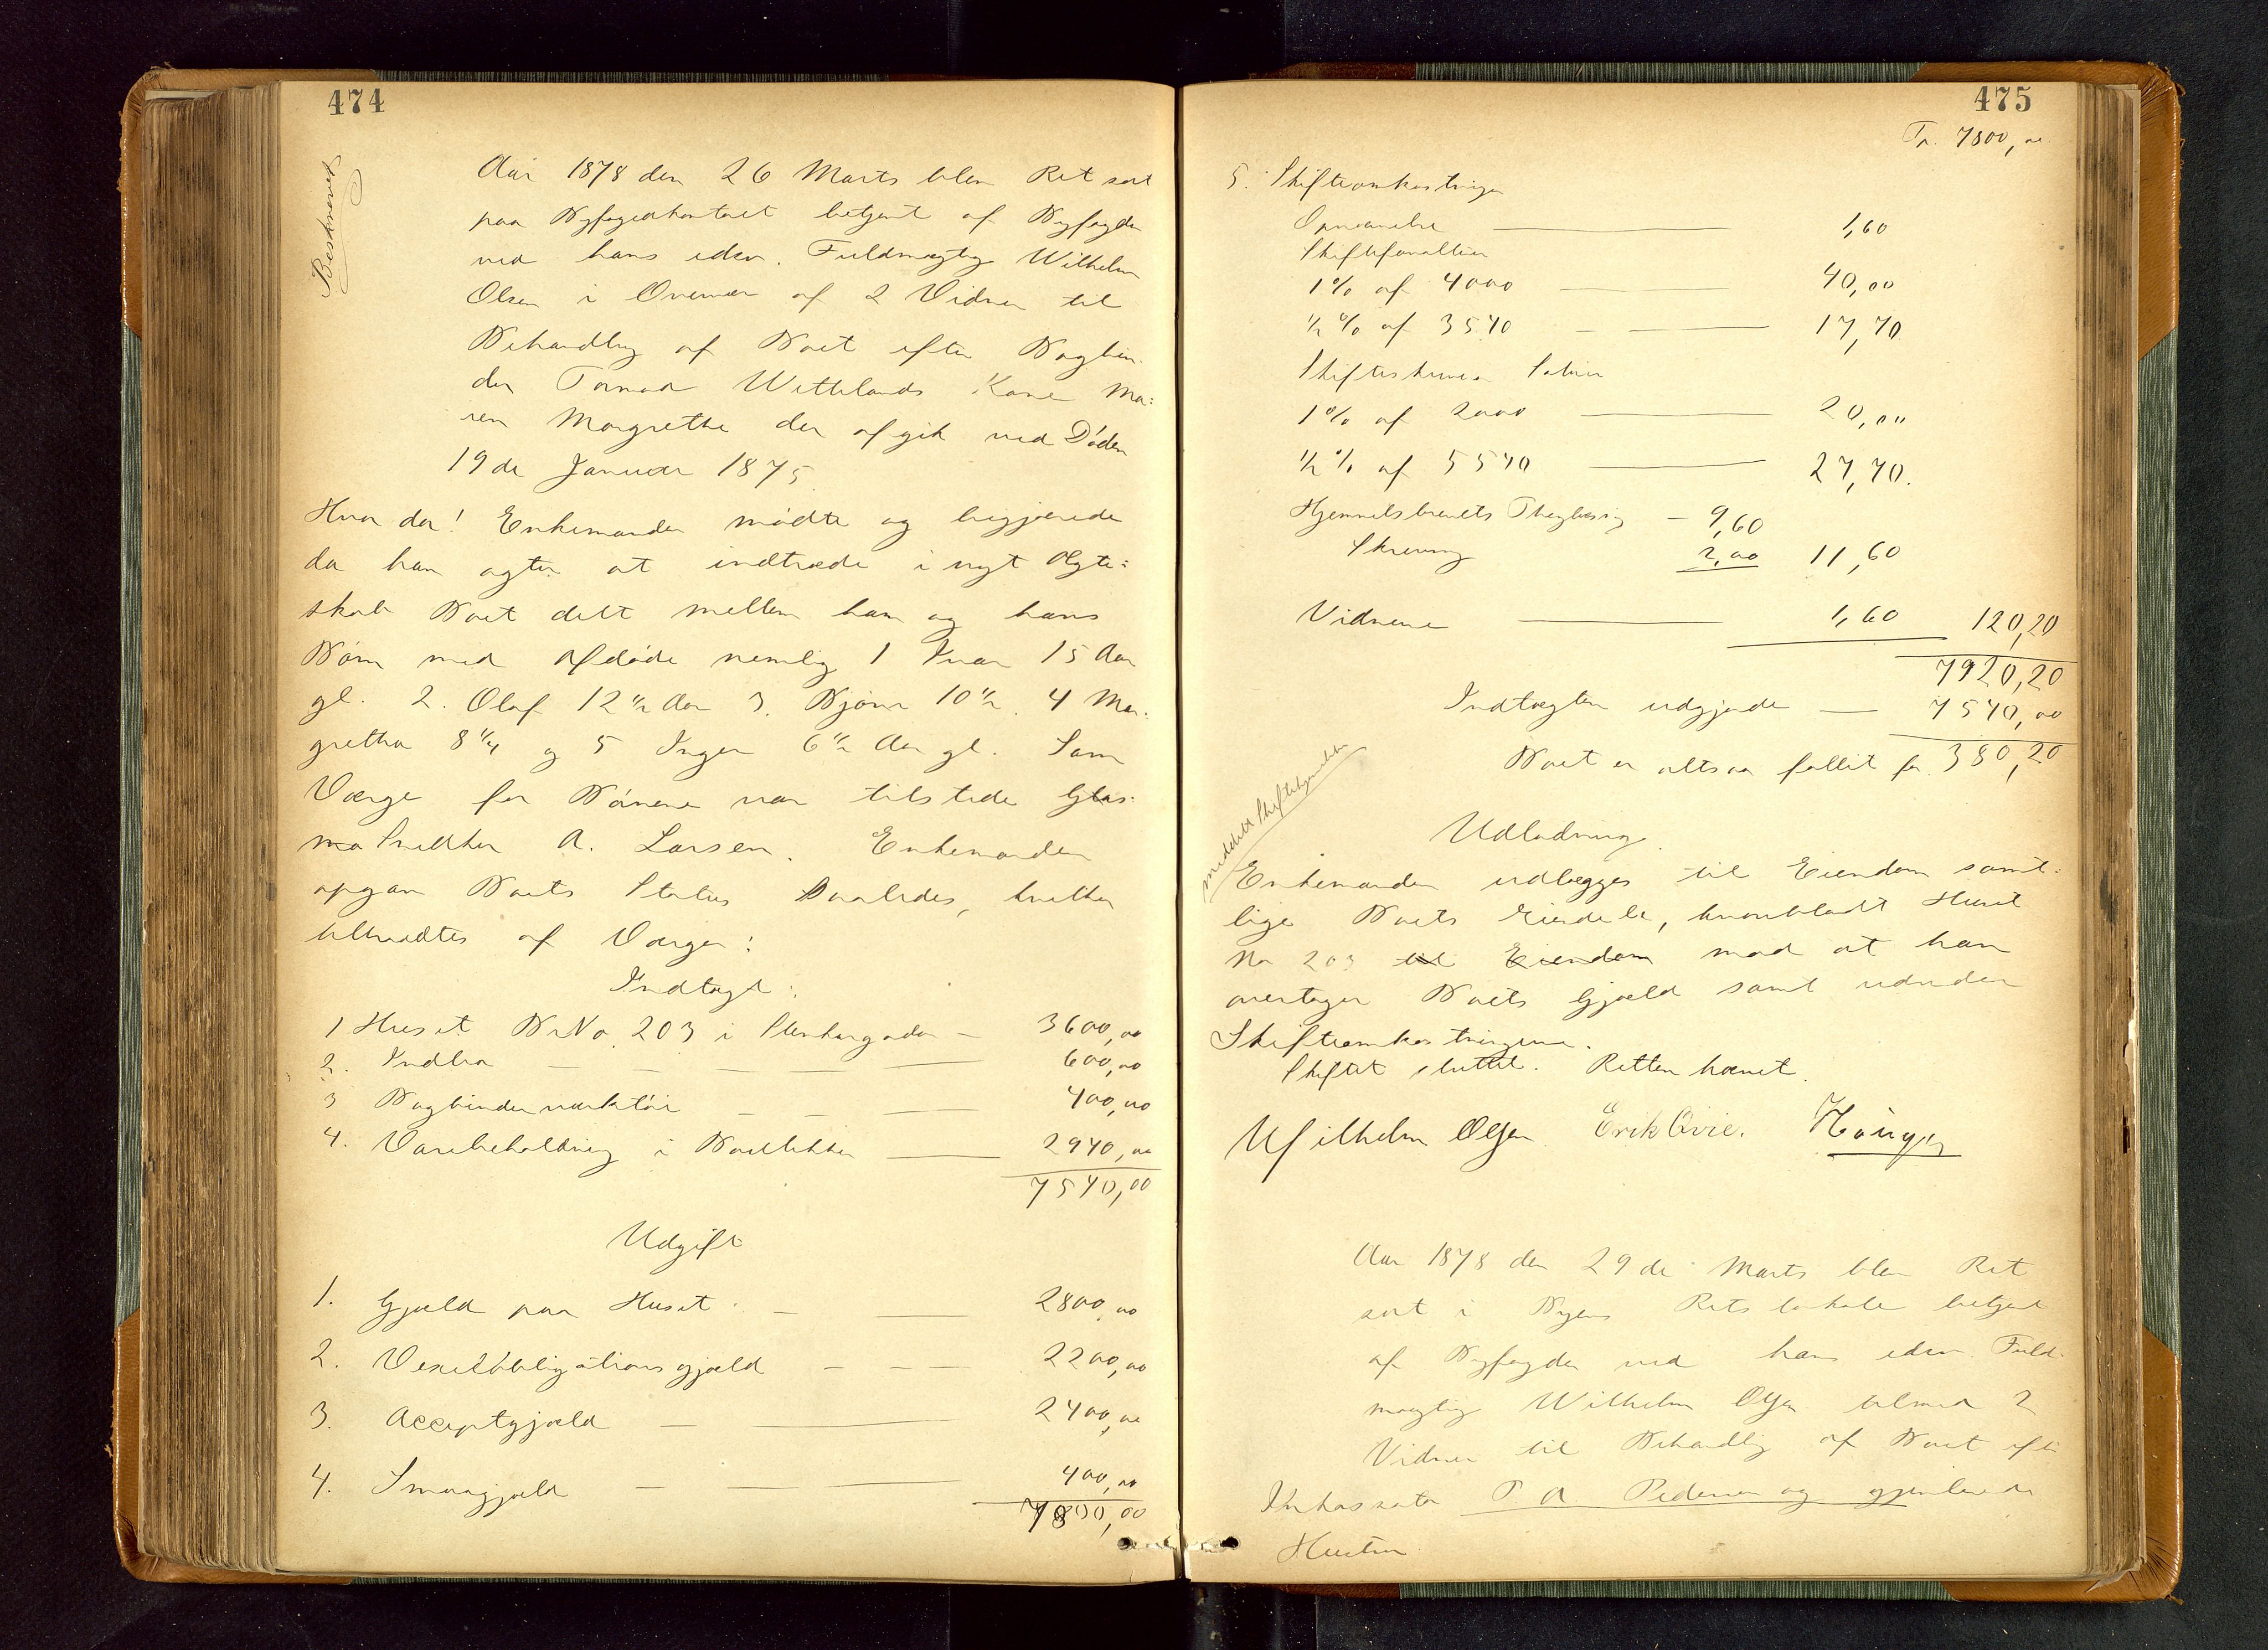 474
Beskrevet
Aar 1878 den 26 Marts blev Ret sat
paa Byfogedkontoret betjent af Byfogden
ved hans edsv. Fuldmægtig Wilhelm
Olsen i Overvær af 2 Vidner til
Behandling af Boet efter Bogbin-
der Wettelands Kone Ma:
ren Margrethe der afgik ved Døden
19de Januar 1875.
Hvor da! Enkemanden mødte og begjærede
da han agter at indtræde i nyt Ægte:
skab Boet delt mellem ham og hans
Børn med Afdøde nemlig 1 Ivar 15 Aar
gl. 2. Olaf 12½ Aar 3. Bjarne 10½. 4 Mar-
gretha 8¼ og 5 Inger 6½ Aar gl. Som
Værge for Børnene var tilstede Glas:
ma A. Larsen. Enkemanden
opgav Boets Status saaledes, hvilken
tiltraadtes af Værgen:
Indtægt:
1 Huset BrNo. 203 i Stenhargaden — 3600,00
2. Indbo — — — — 600,00
3 Bogbinderværktøi — — — 400,00
4. Varebeholdning i Boutikken — 2940,00
7540,00
Udgift
1. Gjæld paa Huset. — — 2800,00
2. Vexelobligationsgjæld — — — 2200,00
3. Acceptgjæld — — 2400,00
4. Smaagjæld — — — 400,00
7800,00
475
Tr. 7800,00
5. Skifteomkostninger
Opnævnelse — 1,60
Skifteforvalteren
1% af 4000 — — 40,00
½% af 3540 — — 17,70
Skifteskriver Salær
1% af 2000 — 20,00
½% af 5540 — 27,70.
Hjemmelsbrevets Thinglæsning — 9,60
Skrivning 2,00 11,60
Vidnene — 1,60 120,20
7920,20
Indtægten udgjorde — 7540,00
Boet er altsaa fallit for 380,20
meddelt Skiftehjemmel
Udlodning.
Enkemanden udlægges til Eiendom samt-
lige Boets Eiendele, hvoriblandt Huset
No 203 til Eiendom mod at han
overtager Boets Gjæld samt udreder
Skifteomkostningerne.
Skiftet sluttet. Retten hævet.
Wilhelm Olsen. Erik Qvie.
Aar 1878 den 29de Marts blev Ret
sat i Byens Retslokale betjent
af Byfogden ved hans edsv. Fuld-
mægtig Wilhelm Olsen tilmed 2
Vidner til Behandling af Boet efter
Inkassator P A Pedersen og gjenlevende
Hustru